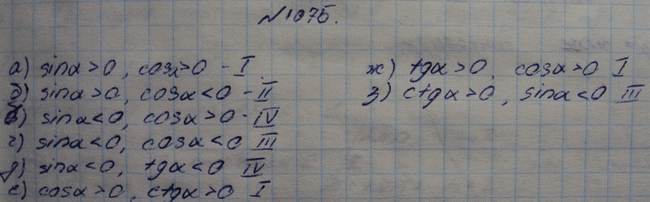 №1075.
а) sinα>0, cosα>0 - I
б) sinα>0, cosα<0 - II
в) sinα<0, cosα>0 - IV
г) sinα<0, cosα<0 III
д) sinα<0, tgα<0 IV
е) cosα>0, ctgα>0 I
ж) tgα>0, cosα>0 I
з) ctgα>0, sinα<0 III